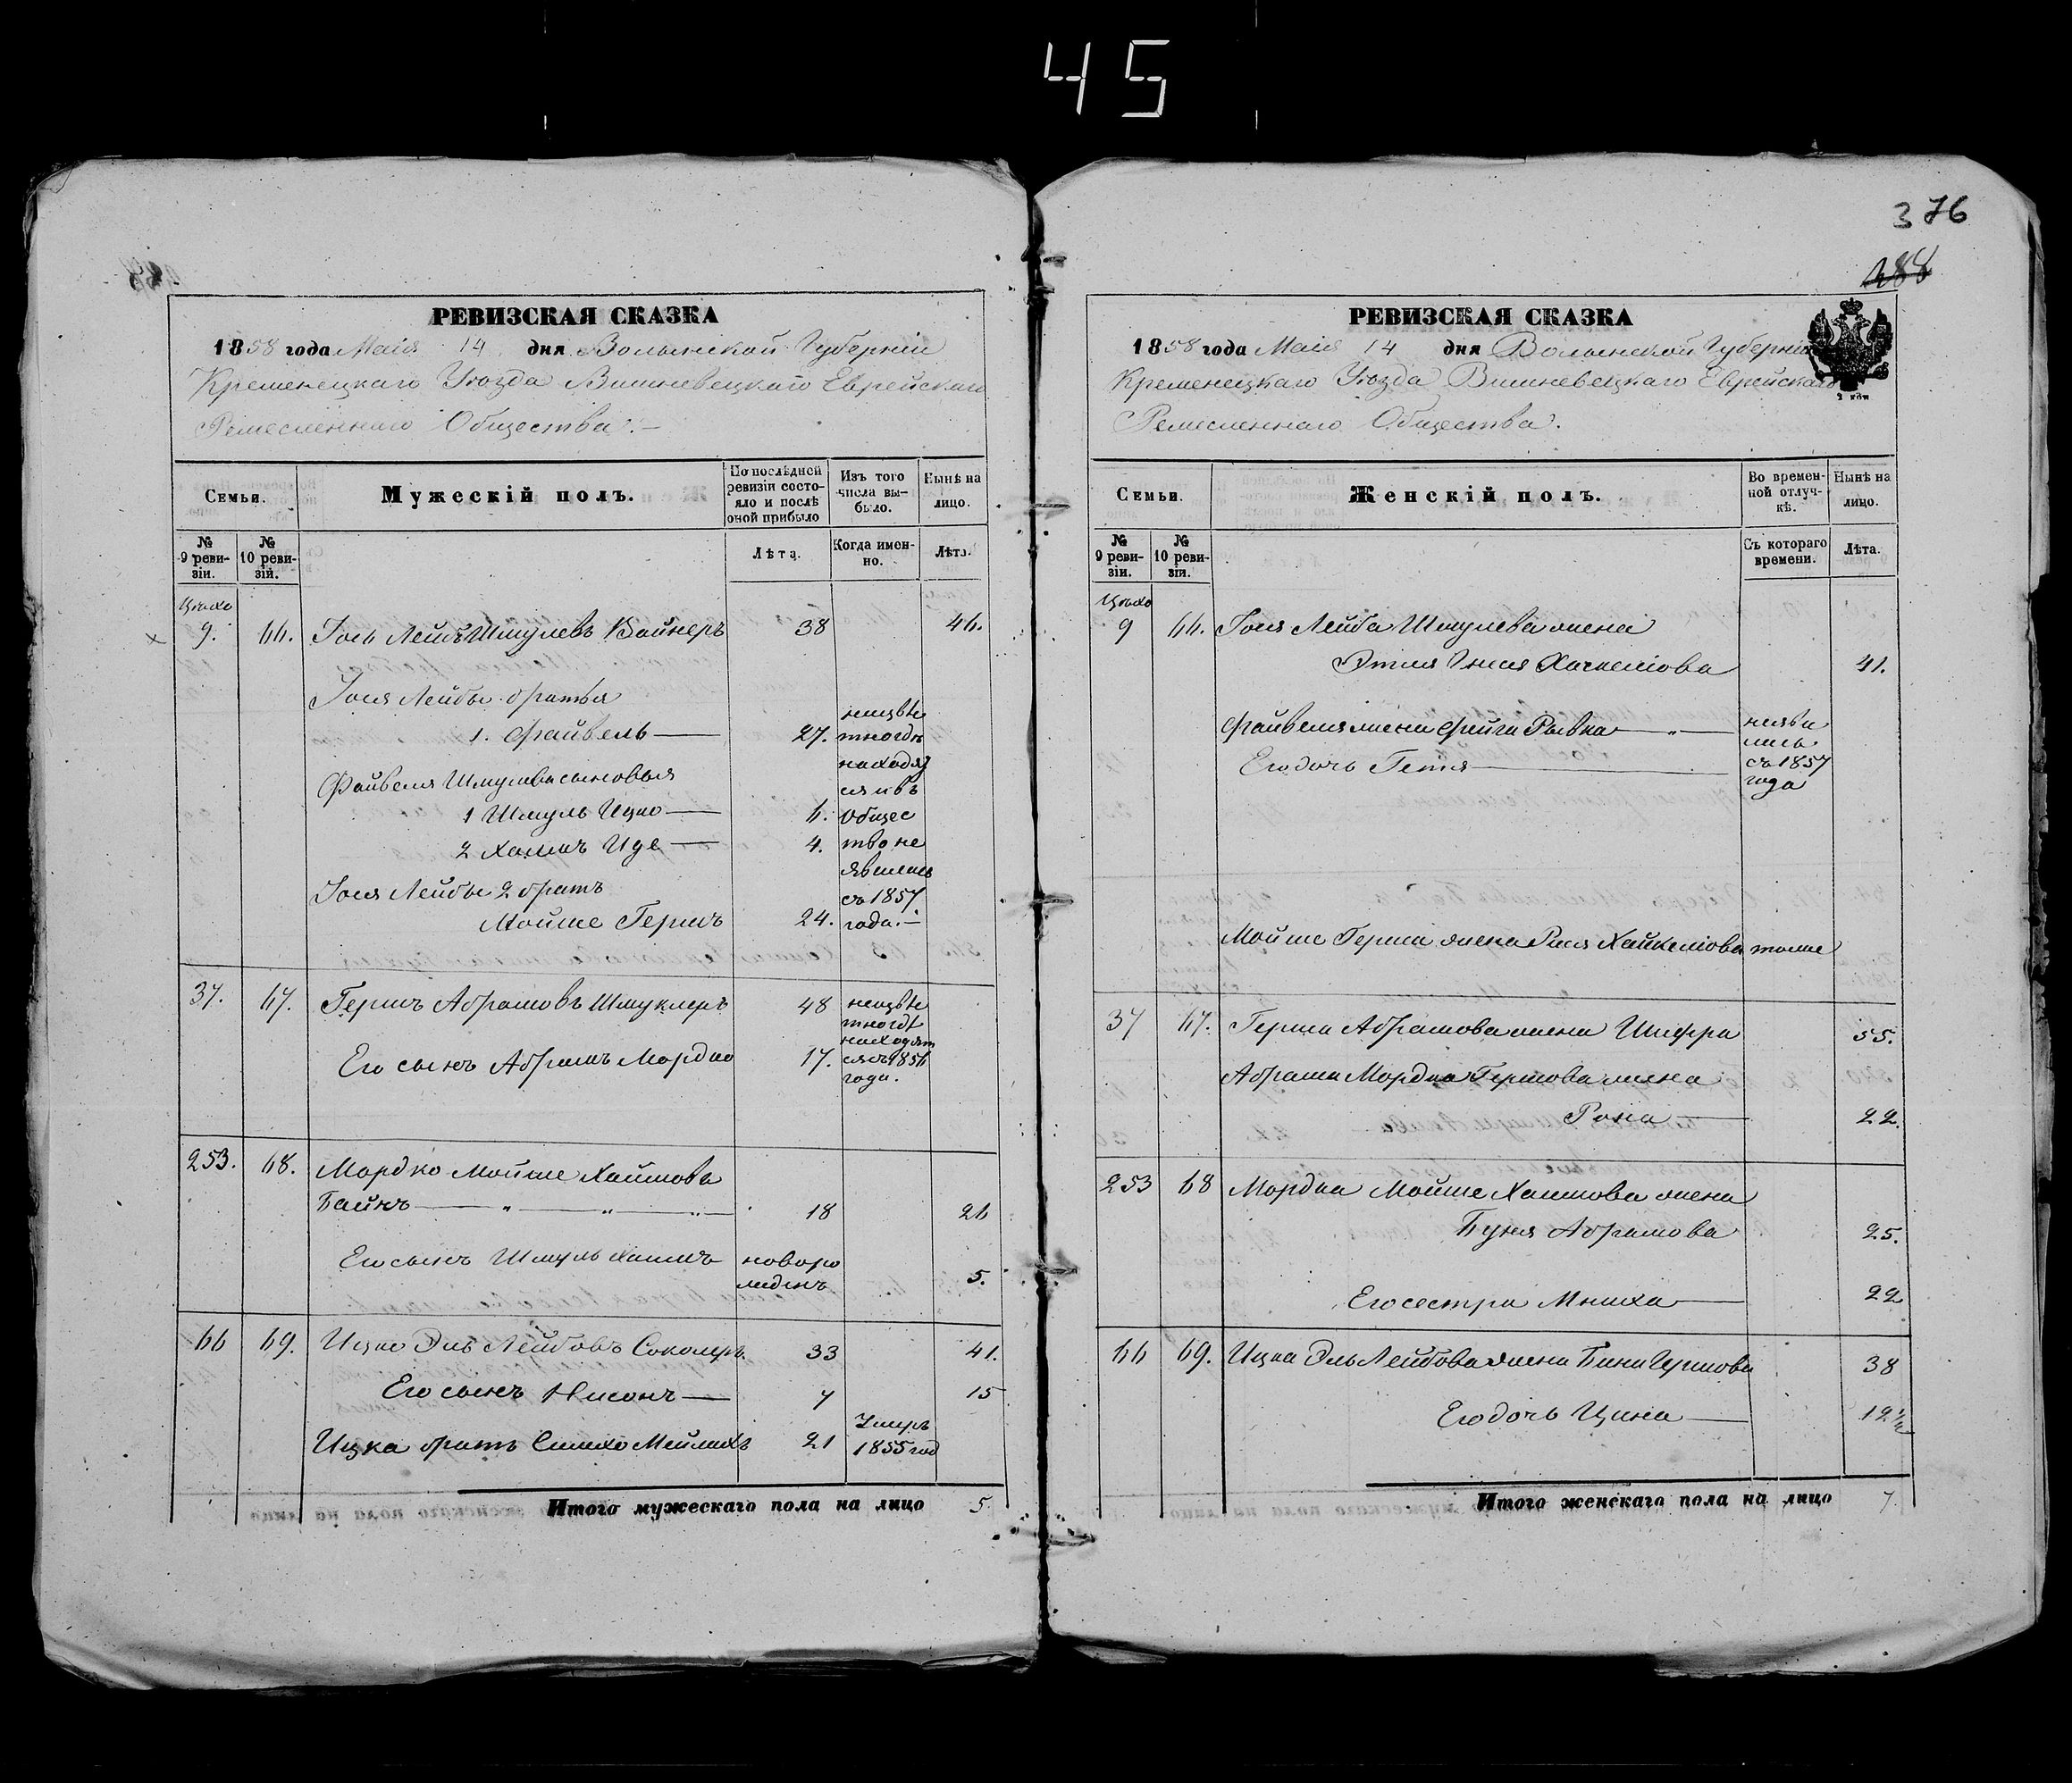 45
376
488
РЕВИЗСКАЯ СКАЗКА
1858 года Маія 14 дня Волынской Губерніи
Кременецкаго Уѣзда Вишневецкаго Еврейскаго
Ремесленнаго Общества.
Семьи.
Мужескій полъ.
По послѣдней ревизіи состояло и послѣ оной прибыло
Изъ того числа выбыло.
Нынѣ на лицо.
№ 9 ревизіи.
№ 10 ревизіи.
Лѣта.
Когда именно.
Лѣта.
Цехо
9. 66. Іось Лейб Шмулевъ Вайнеръ 38 46.
Іося Лейбы братья
1. Файвель 27.
Файвеля Шмулева сыновья
1 Шмуль Ицко 6.
2 Хаимъ Иде 4.
Іося Лейбы 2 братъ
Мойше Гершъ 24.
неизвѣ
тно гдѣ
находят
ся и въ
общес
тво не
явились
съ 1857
года.
37. 67. Гершъ Абрамовъ Шмуклеръ 48
Его сынъ Абрамъ Мордко 17.
неизвѣ
тно гдѣ
находят
ся съ 1856
года.
253. 68. Мордко Мойше Хаимовъ
Байкъ 18 26
Его сынъ Шмуль Хаимъ новоро 5.
жденъ
66 69. Ицко Эль Лейбовъ Соколеръ 33 41.
Его сынъ Нисонъ 7 15
Ицка братъ Симхо Мейлихъ 21 Умеръ
1855 год
Итого мужескаго пола на лицо 5.
РЕВИЗСКАЯ СКАЗКА
1858 года Маія 14 дня Волынской Губерніи
Кременецкаго Уѣзда Вишневецкаго Еврейскаго
Ремесленнаго Общества.
Семьи.
Женскій полъ.
Во временной отлучкѣ.
Нынѣ на лицо.
№ 9 ревизіи.
№ 10 ревизіи.
Съ котораго времени.
Лѣта.
Цехо
9 66. Іося Лейба Шмулева жена
Этля Хаскелiова 41.
Файвеля жена Фейга Рывка
Его дочь Гетя
неяви
лись
съ 1857
года
Мойше Герша жена Рися Хайкелiова тоже
37 67. Герша Абрамова жена Шифра 55.
Абрама Мордка Гершова жена
Роха 22.
253 68 Мордка Мойше Хаимова жена
Буня Абрамова 25.
Его сестра Мниха 22
66 69. Ицка Эль Лейбова жена Бина Гершова 38
Его дочь Ципа 12 1/2
Итого женскаго пола на лицо 7.